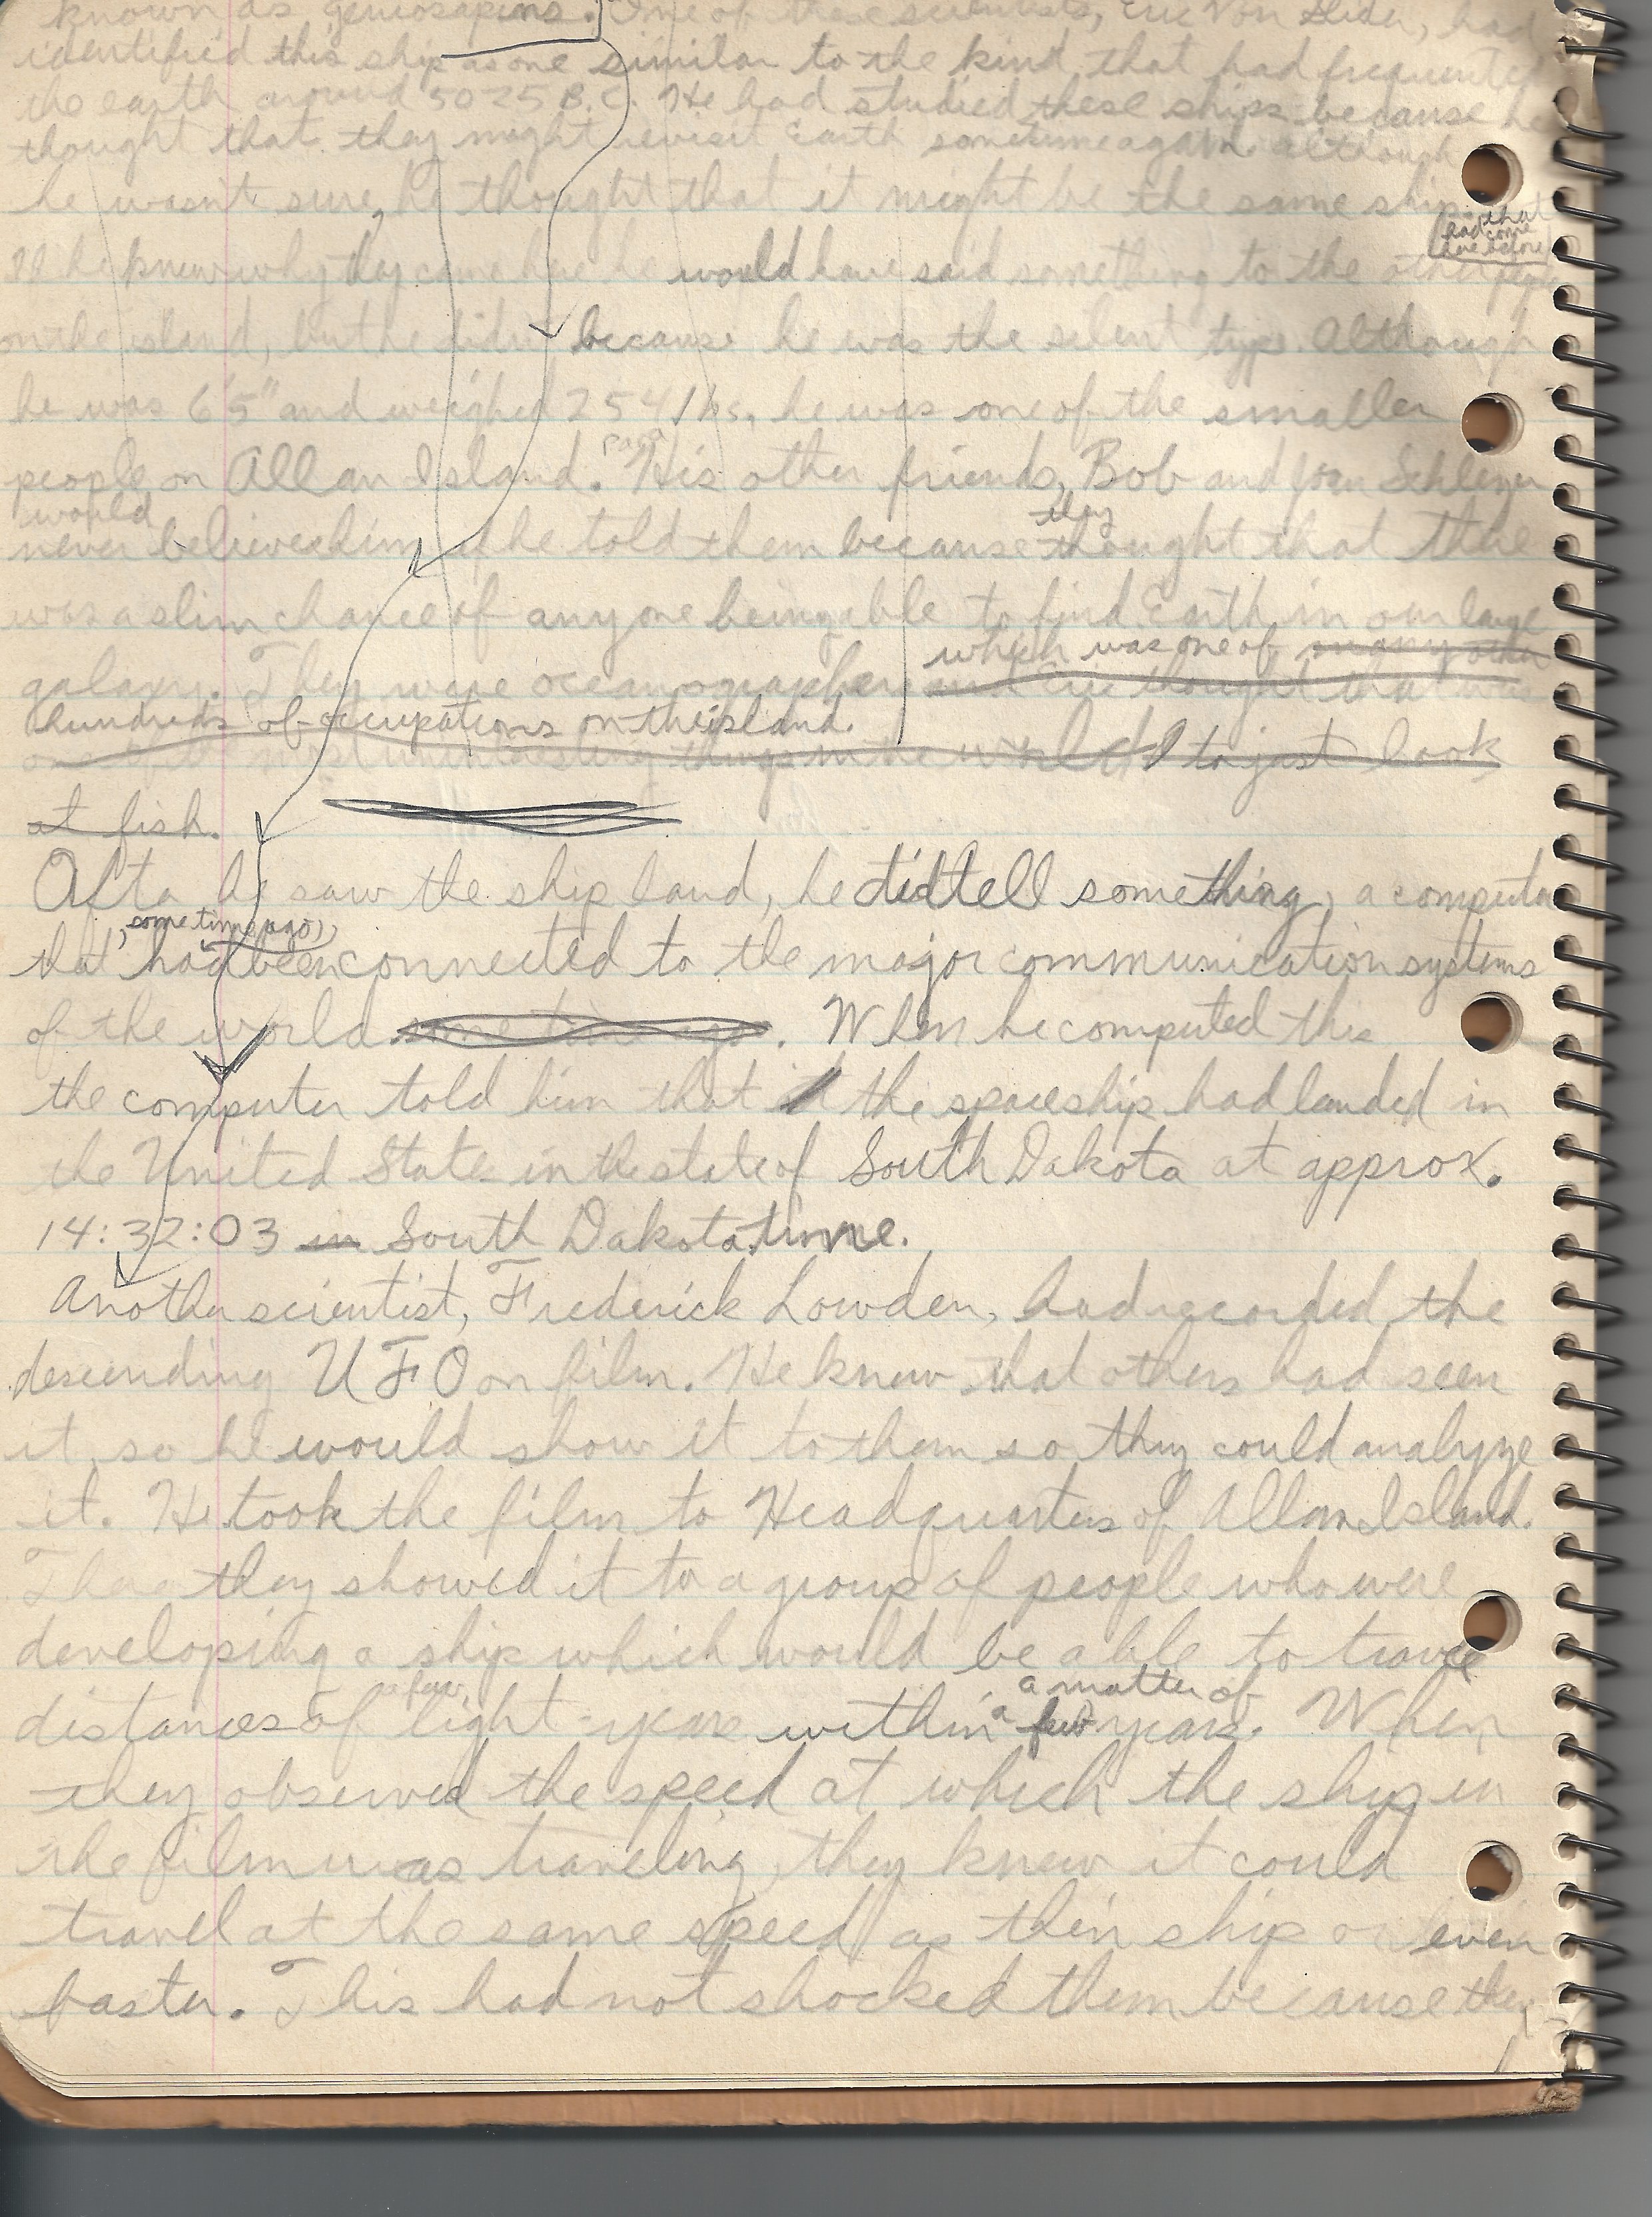 known as geniosapiens. One of these scientists, Eric Von Slider, had
identified this ship as one similar to the kind that had frequented
the earth around 5025 B.C. He had studied these ships because he
thought that they might revisit Earth sometime again although
he wasn't sure, he thought that it might be the same ship
that
had come
here before
If he knew why they came here he would have said something to the other people
on the island, but he didn't because he was the silent type. Although
he was 6'5" and weighed 254 lbs, he was one of the smaller
para
people on Allan Island. His other friends, Bob and Joan
would they
never believe him if he told them because thought that there
was a slim chance of anyone being able to find Earth in our large
which was one of many other
galaxy. They were oceanographers and Eric thought that was
hundreds of occupations on the island.
one of the most uninteresting things in the world to just look
at fish.
After he saw the ship land, he did tell something, a computer
, some time ago,
that had been connected to the major communication systems
of the world some time ago. When he computed this
the computer told him that the spaceship had landed in
the United States in the state of South Dakota at approx.
14:32:03 in South Dakota time.
Another scientist, Frederick Lowden, had recorded the
descending UFO on film. He knew that others had seen
it, so he would show it to them so they could analyze
it. He took the film to Headquarters of Allan Island.
There they showed it to a group of people who were
developing a ship which would be able to travel
a few a matter of
distances of light-years within a few years. When
they observed the speed at which the ship in
the film was traveling, they knew it could
travel at the same speed as their ship or even
faster. This had not shocked them because they